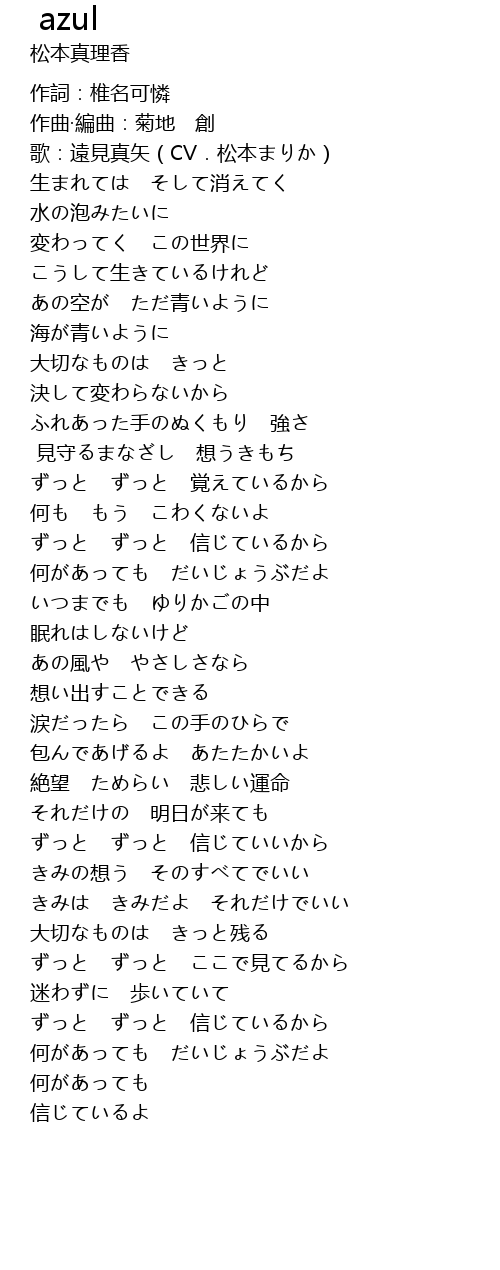 azul
松本真理香
作詞：椎名可憐
作曲·編曲：菊地　創
歌：遠見真矢 ( CV．松本まりか )
生まれては　そして消えてく
水の泡みたいに
変わってく　この世界に
こうして生きているけれど
あの空が　ただ青いように
海が青いように
大切なものは　きっと
決して変わらないから
ふれあった手のぬくもり　強さ
見守るまなざし　想うきもち
ずっと　ずっと　覚えているから
何も　もう　こわくないよ
ずっと　ずっと　信じているから
何があっても　だいじょうぶだよ
いつまでも　ゆりかごの中
眠れはしないけど
あの風や　やさしさなら
想い出すことできる
涙だったら　この手のひらで
包んであげるよ　あたたかいよ
絶望　ためらい　悲しい運命
それだけの　明日が来ても
ずっと　ずっと　信じていいから
きみの想う　そのすべてでいい
きみは　きみだよ　それだけでいい
大切なものは　きっと残る
ずっと　ずっと　ここで見てるから
迷わずに　歩いていて
ずっと　ずっと　信じているから
何があっても　だいじょうぶだよ
何があっても
信じているよ